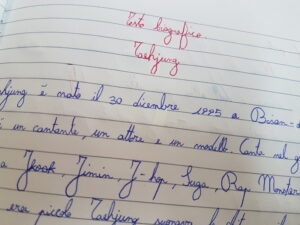 Testo biografico
Taehjung
hjung è nato il 30 dicembre 1995 a Bisan-d
un cantante, un attore e un modello. Canta nel g
a Jkook, Jimin, J-hop, Suga, Rap Monster
era piccolo Taehjung suonava